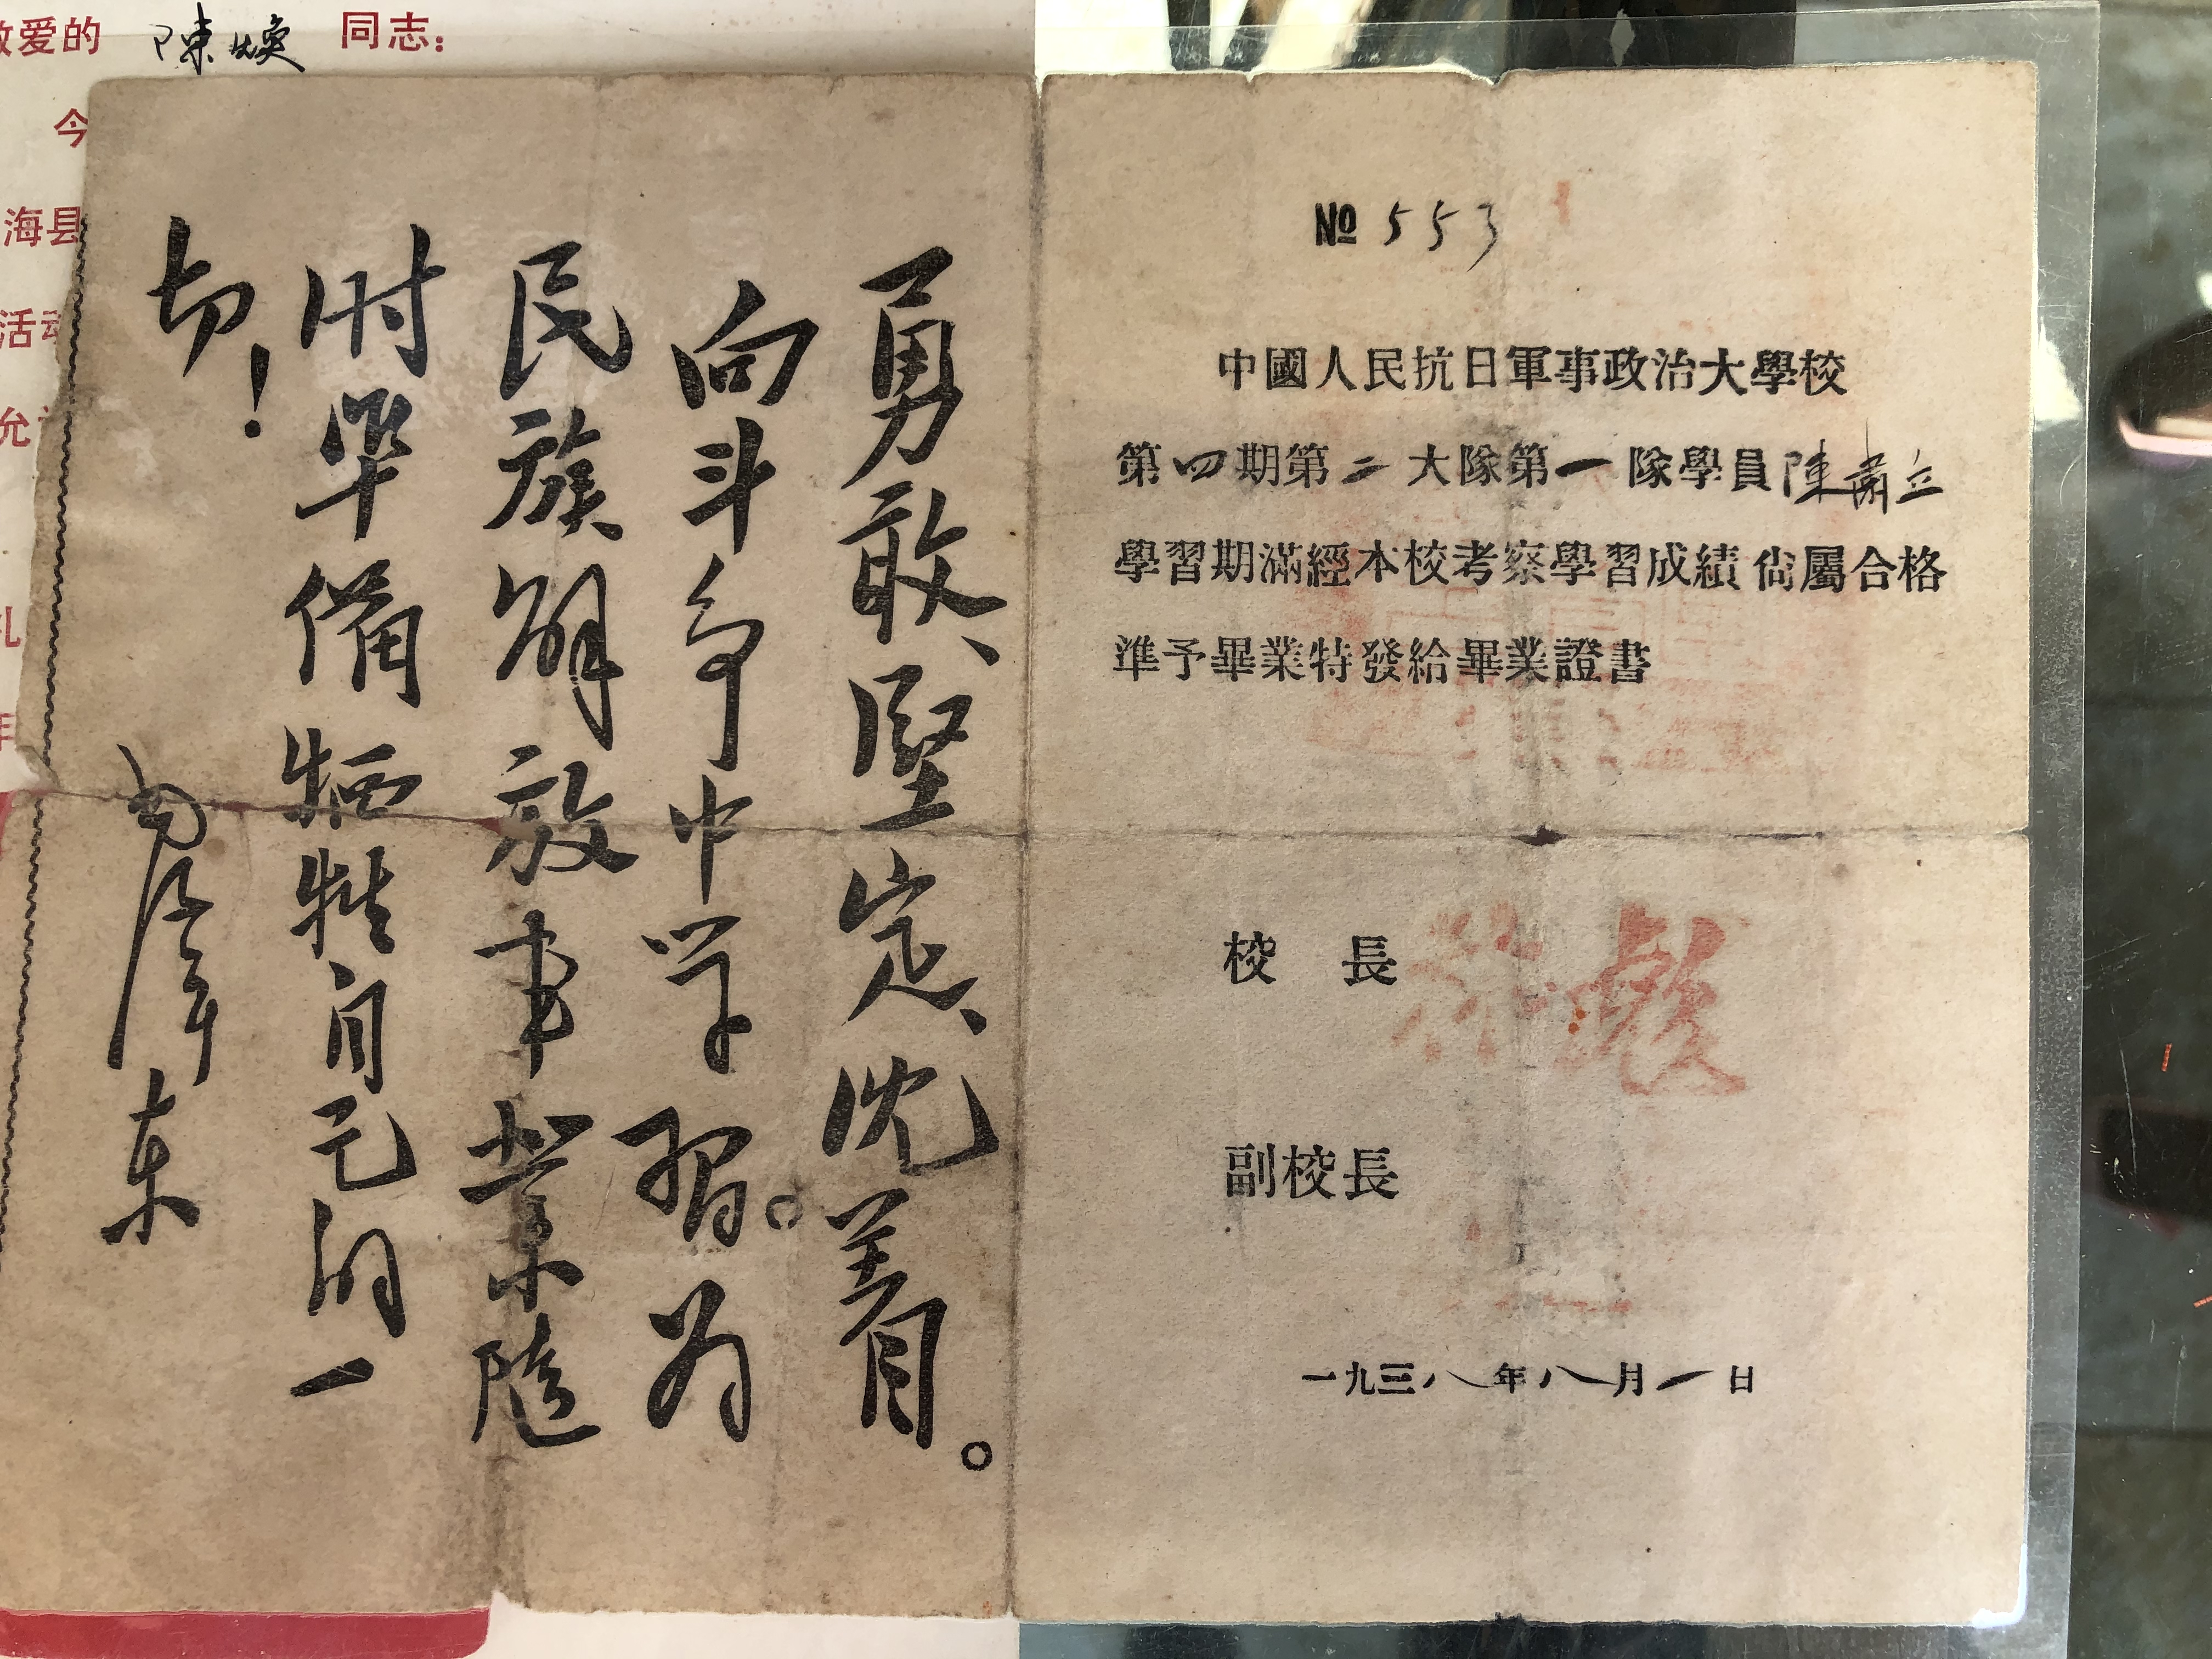 敬爱的 陳焕 同志：
今
海县
活动
允许
礼
年
№ 553
中國人民抗日軍事政治大學校
第四期第二大隊第一隊學員陳肅立
學習期滿經本校考察學習成績尙屬合格
準予畢業特發給畢業證書
校 長 林彪
副校長
一九三八年八月一日
勇敢、堅定、沈着。
向斗争中学習。为
民族解放事業隨
时準備牺牲自己的一
切！
毛泽东